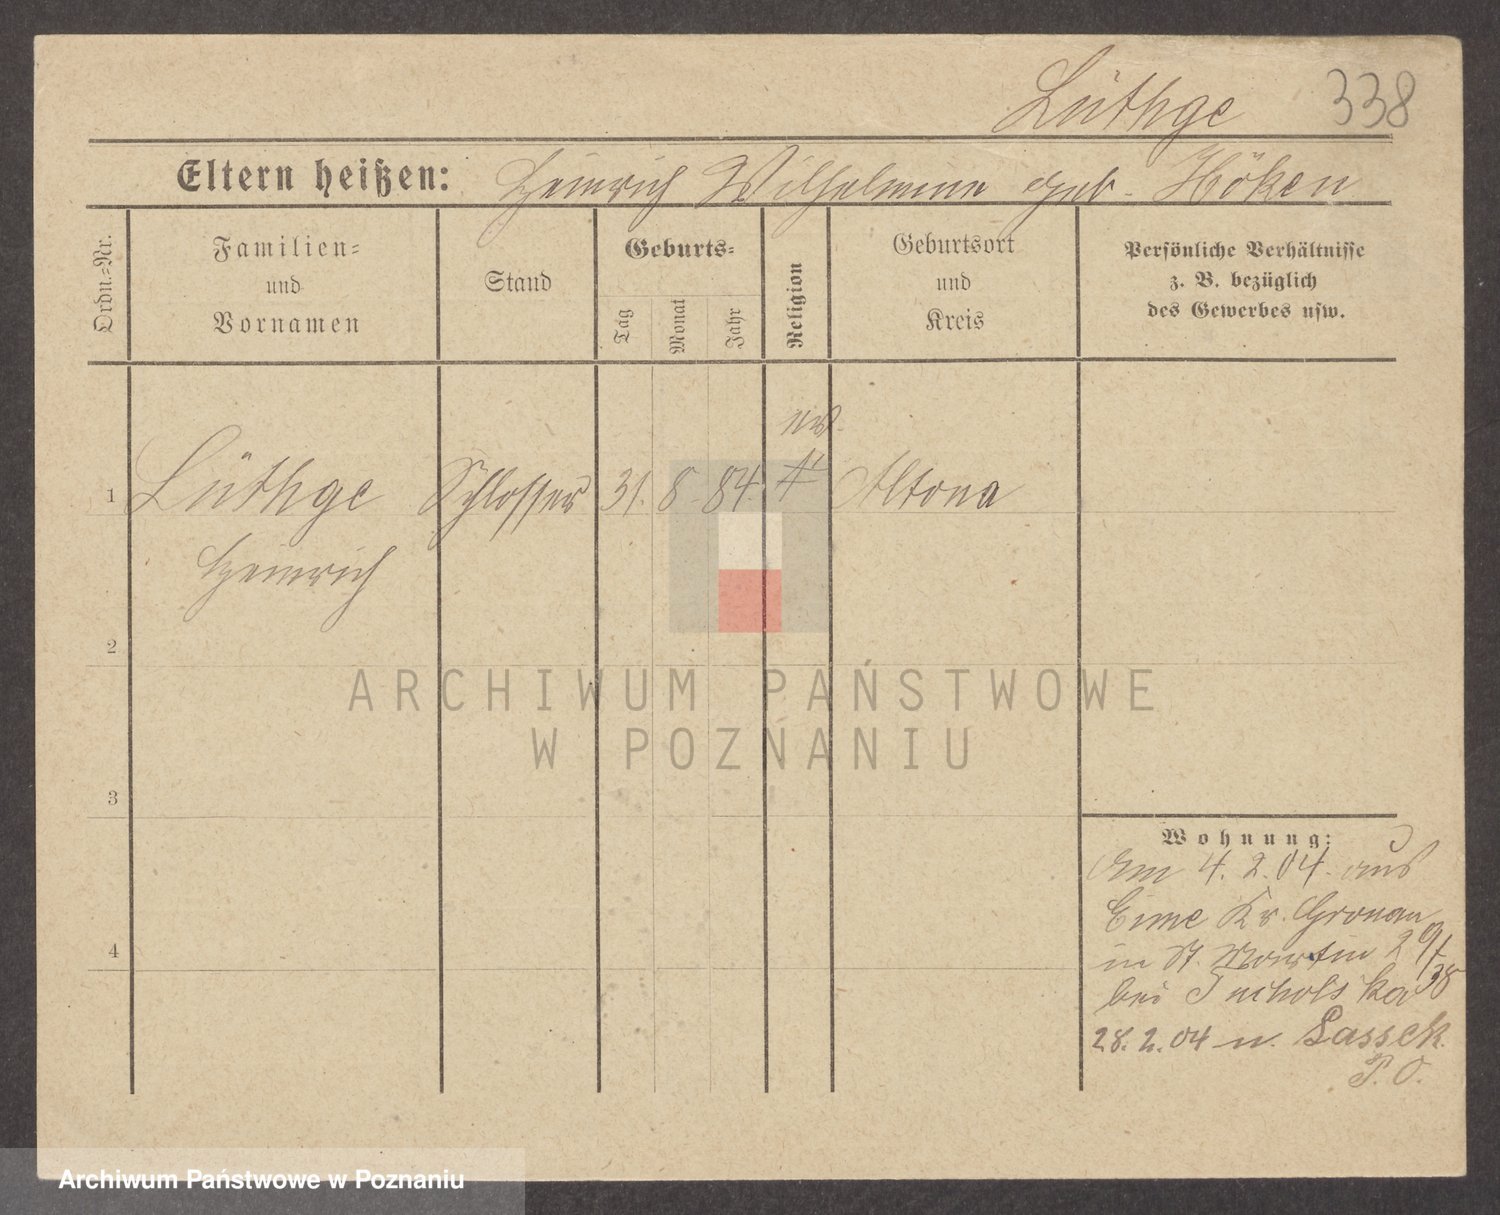 Lüthge 338
Eltern heißen: Heinrich Wilhelmine geb. Höken
Ordn.=Nr.
Familien=
und
Vornamen
Stand
Geburts=
Tag
Monat
Jahr
Religion
Geburtsort
und
Kreis
Persönliche Verhältnisse
z. B. bezüglich
des Gewerbes usw.
1 Lüthge Schlosser 31. 8. 84. Altona
Heinrich
2
3
4
ARCHIWUM PAŃSTWOWE
W POZNANIU
Wohnung:
Am 4. 2. 04. aus
Eime Kr. Gronau
in St. Martin 29/
bei Tucholska 38
28. 2. 04 n. Lassek
P. O.
Archiwum Państwowe w Poznaniu